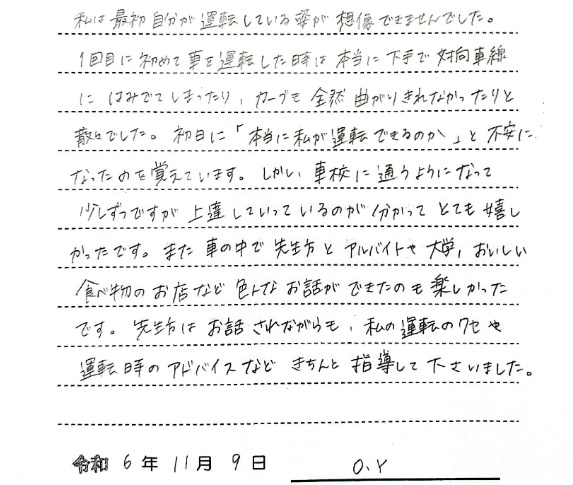 私は最初自分が運転している姿が想像できませんでした。
1回目に初めて車を運転した時は本当に下手で対向車線
にはみでてしまったり、カーブも全然曲がりきれなかったりと
散々でした。初日に「本当に私が運転できるのか」と不安に
なったのを覚えています。しかし、車校に通うようになって
少しずつですが上達していっているのが分かってとても嬉し
かったです。また車の中で先生方とアルバイトや大学、おいしい
食べ物のお店など色々なお話ができたのも楽しかった
です。先生方はお話されながらも、私の運転のクセや
運転時のアドバイスなどきちんと指導して下さいました。
令和 6 年 11 月 9 日 O.Y